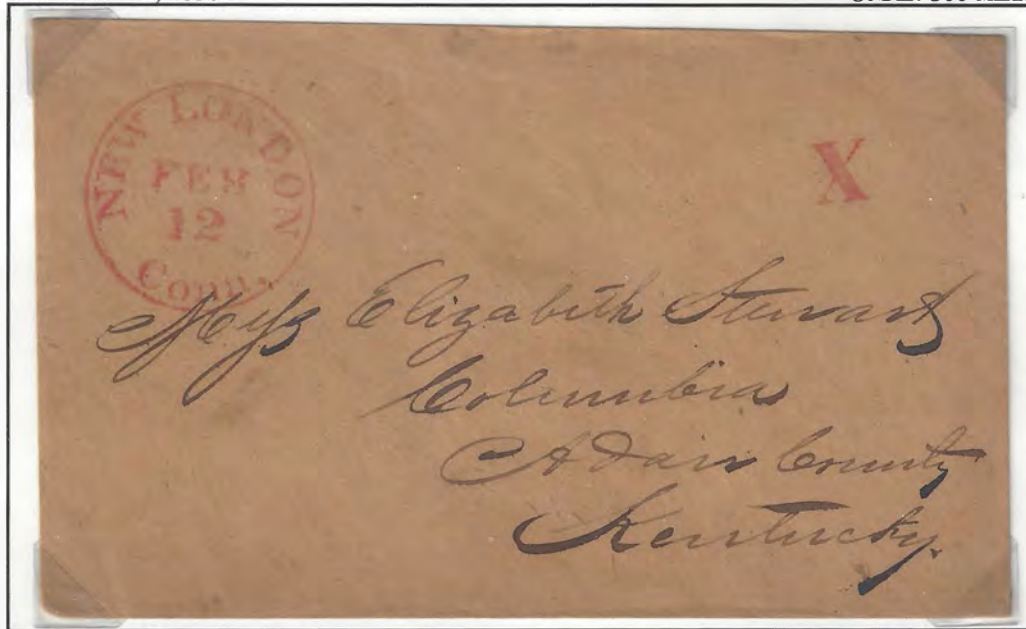 NEW LONDON
FEB
12
Conn.
X
Miss Elizabeth Stewart
Columbia
Adair County
Kentucky.